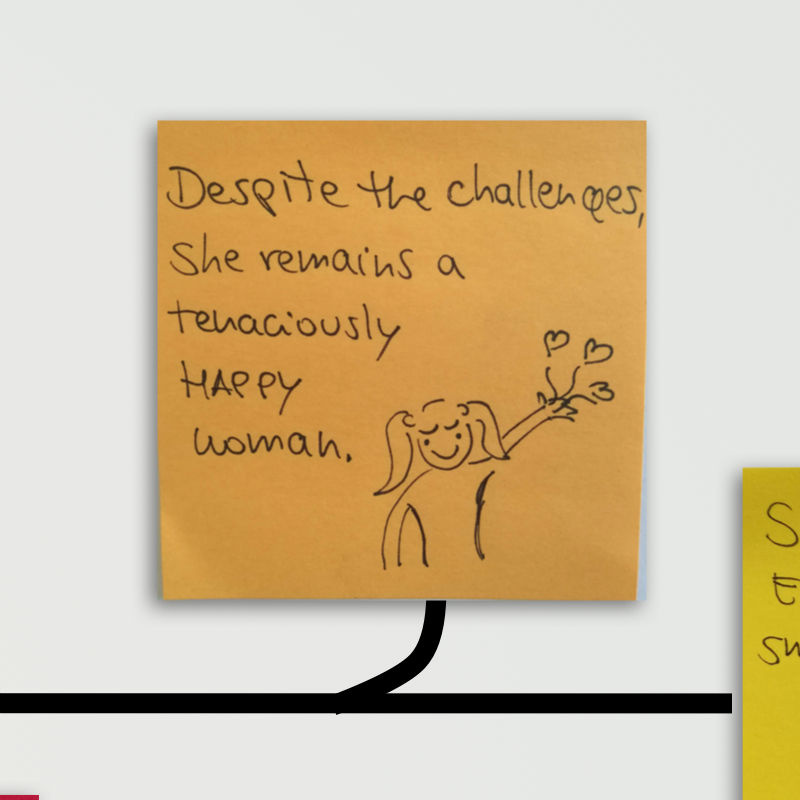 Despite the challenges,
she remains a
tenaciously
HAPPY
woman.
S
E
sw